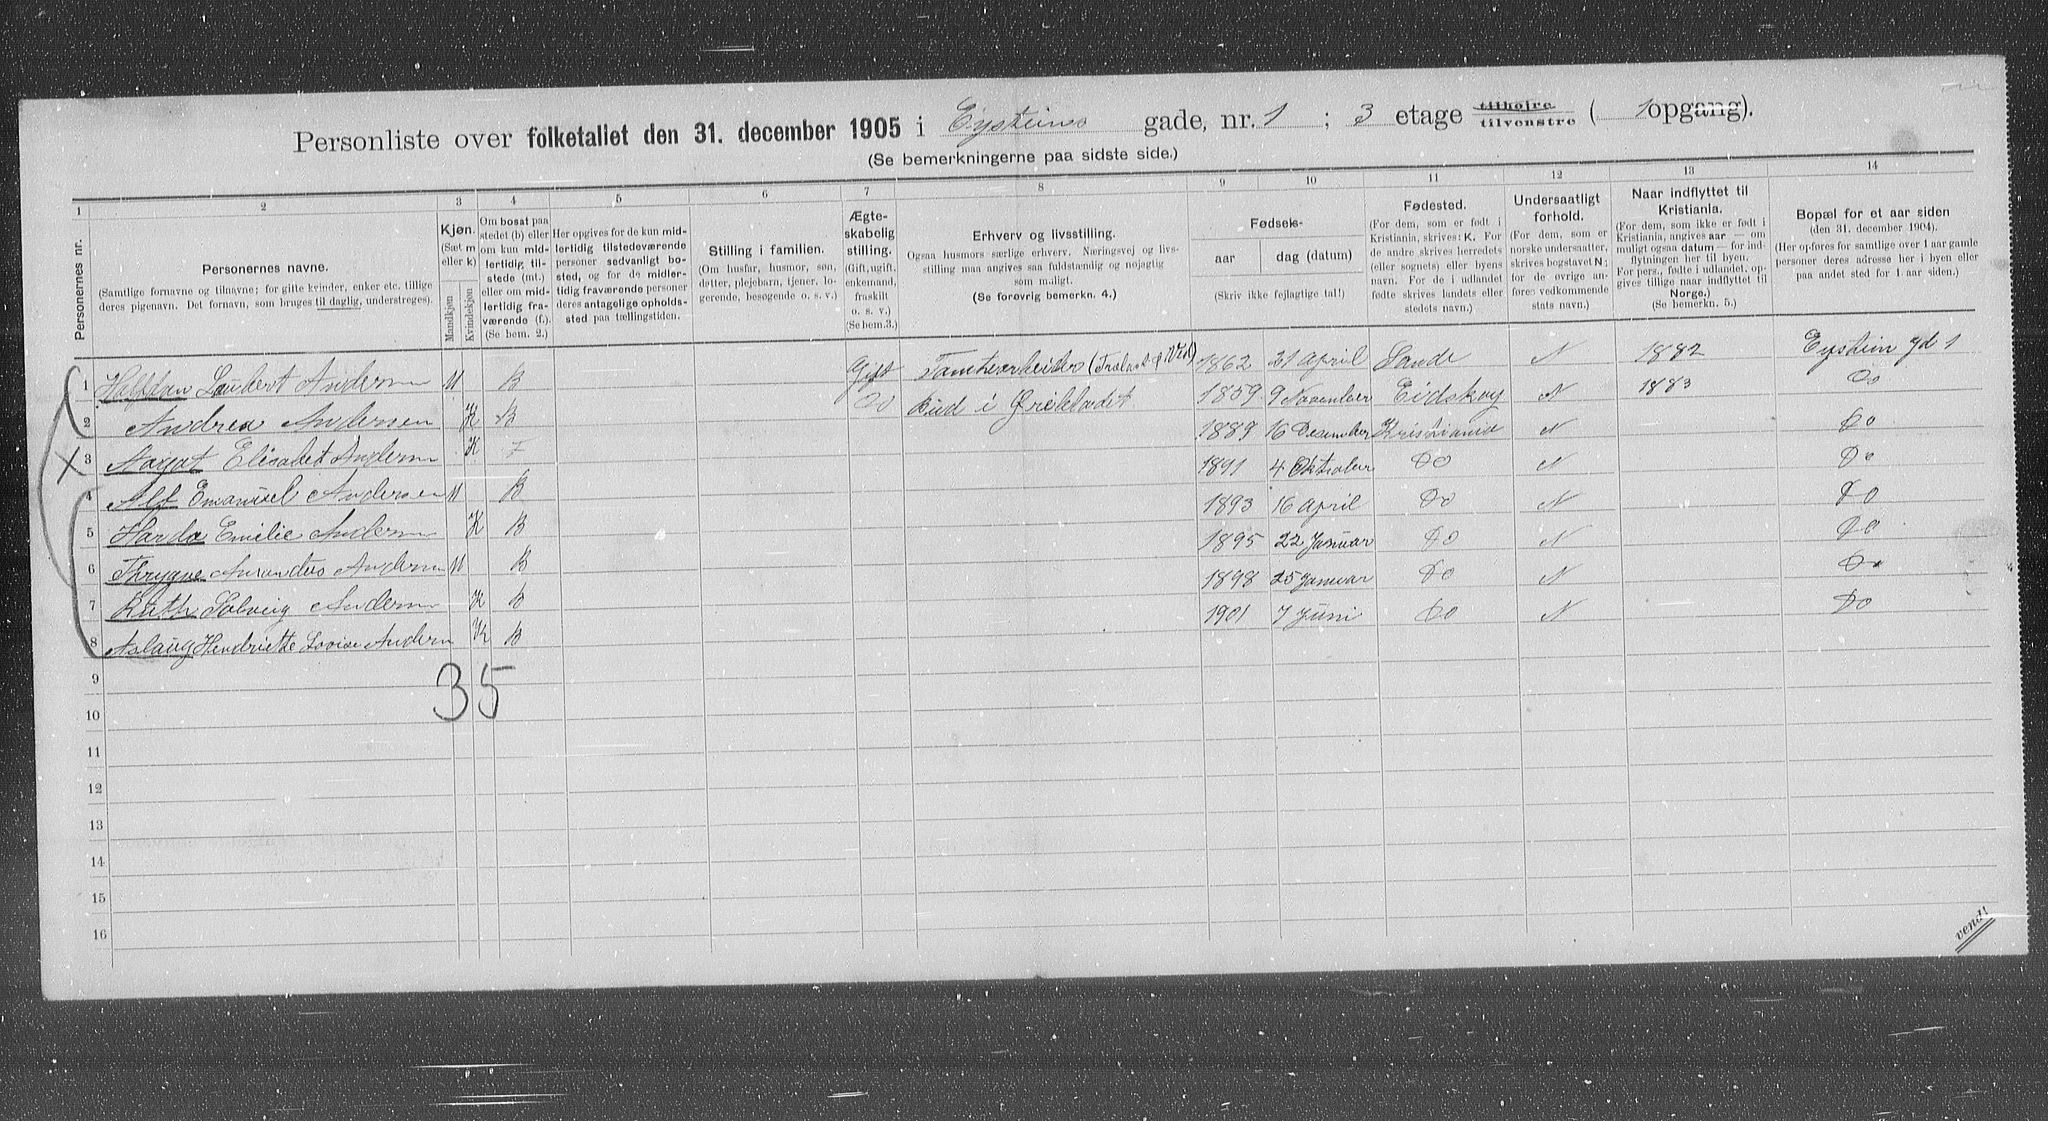 Personliste over folketallet den 31. december 1905 i Eysteins gade, nr. 1 ; 3 etage tilhøjre tilvenstre ( 1 opgang).
(Se bemerkningerne paa sidste side.)
1 2 3 4 5 6 7 8 9 10 11 12 13 14
Personernes nr.
Personernes navne.
(Samtlige fornavne og tilnavne; for gifte kvinder, enker etc. tillige deres pigenavn. Det fornavn, som bruges til daglig, understreges).
Kjøn.
(Sæt m eller k)
Mandkjøn
Kvindekjøn
Om bosat paa stedet (b) eller om kun midlertidig tilstede (mt.) eller om midlertidig fraværende (f.). (Se bem. 2.)
Her opgives for de kun midlertidig tilstedeværende personer sedvanligt bosted, og for de midlertidig fraværende personer deres antagelige opholdssted paa tællingstiden.
Stilling i familien.
(Om husfar, husmor, søn, datter, plejebarn, tjener, logerende, besøgende o. s. v.)
Ægteskabelig stilling.
(Gift, ugift, enkemand, fraskilt o. s. v.) (Se bem. 3.)
Erhverv og livsstilling.
Ogsaa husmors særlige erhverv. Næringsvej og livsstilling maa angives saa fuldstændig og nøjagtig som muligt.
(Se forøvrig bemerkn. 4.)
Fødsels-
aar dag (datum)
(Skriv ikke fejlagtige tal!)
Fødested.
(For dem, som er født i Kristiania, skrives: K. For de andre skrives herredets (eller sognets) eller byens navn. For de i udlandet fødte skrives landets eller stedets navn.)
Undersaatligt forhold.
(For dem, som er norske undersaatter, skrives bogstavet N; for de øvrige anføres vedkommende stats navn.)
Naar indflyttet til Kristiania.
(For dem, som ikke er født i Kristiania, angives aar — om muligt ogsaa datum — for indflytningen her til byen. For pers., fødte i udlandet, opgives tillige naar indflyttet til Norge.)
(Se bemerkn. 5.)
Bopæl for et aar siden
(den 31. december 1904).
(Her opføres for samtlige over 1 aar gamle personer deres adresse her i byen eller paa andet sted for 1 aar siden.)
1 Halfdan Andersen M B Gift 1862 21 April Sande N 1882 Eystein gd 1
2 Andrea Andersen K B Do Bud i 1859 9 November Eidskog N 1883 Do
3 Elisabet Andersen K F 1889 16 Desember Kristiania N Do
4 Alf Emanuel Andersen M B 1891 4 Oktober Do N Do
5 Harda Emilie Andersen K B 1893 16 April Do N Do
6 Andersen M B 1895 22 Januar Do N Do
7 Ruth Solveig Andersen K B 1898 25 Januar Do N Do
8 Aslaug Henriette Lovise Andersen K B 1901 7 Juni Do N Do
9
35
10
11
12
13
14
15
16
vend!